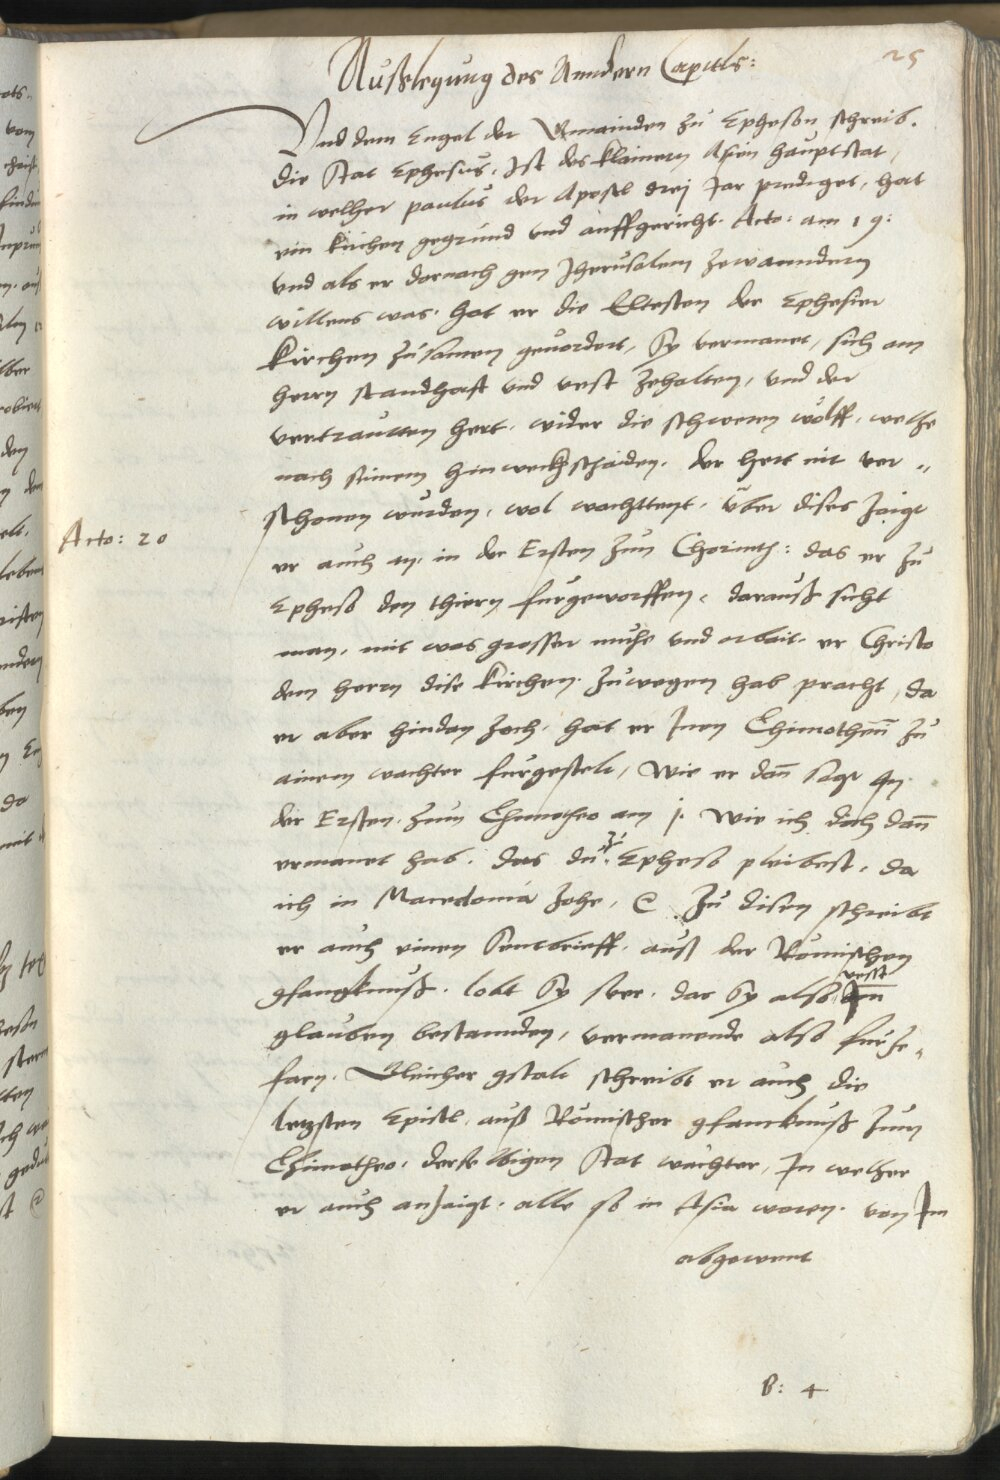 25
Außlegung des Anndern Capitls:
Und dem Engel der Gmainden zu Epheson schreib.
die Stat Ephesus, Ist des klainern Asien hauptstat,
in welher paulus der Apostl drej Jar prediget, hat
ein kirchen gegründ und auffgericht. Acto: am 19:
und als er darnach gen Jherusalem zewanndern
willens was. hat er die Eltesten der Ephesier
kirchen zusamen gevordert, Sy vermanet, sich am
herrn standhaft und vest zehalten, und der
vertrautten hert. wider die schweren wölff. welhe
nach seinem hinweckhschaiden. der hert nit ver„
schonen würden, wol wachttent. über dises zaigt
Acto: 20
er auch an. in der Ersten zun Chorinth: das er zu
Epheso den thiern fürgeworffen, darauß sicht
man, mit was grosser muhe und arbait. er Christo
dem herrn dise kirchen. zuwegen hab pracht, da
er aber hindan zoch, hat er Inen Thimotheũ zu
ainem wachter fürgestelt, Wie er dañ sagt In
der Ersten. zum Thimotheo am j. Wie ich dich dañ
ermanet hab. das du zu Epheso pleibest, da
ich in Macedonia zohe, c Zu disen schreibt
er auch einen Sentbrieff. auß der Römischen
gfangknuß. lobt Sy seer. das Sy also vesst Im
glauben bestannden, vermanende also fürze„
farn. Gleicher gstalt schreibt er auch die
letzsten Epistl, auß Römischer gfanckhnuß zum
Thimotheo, derselbigen Stat wachter, In welher
er auch anzaigt. alle so in Asia waren. von Im
abgewent
B: 4